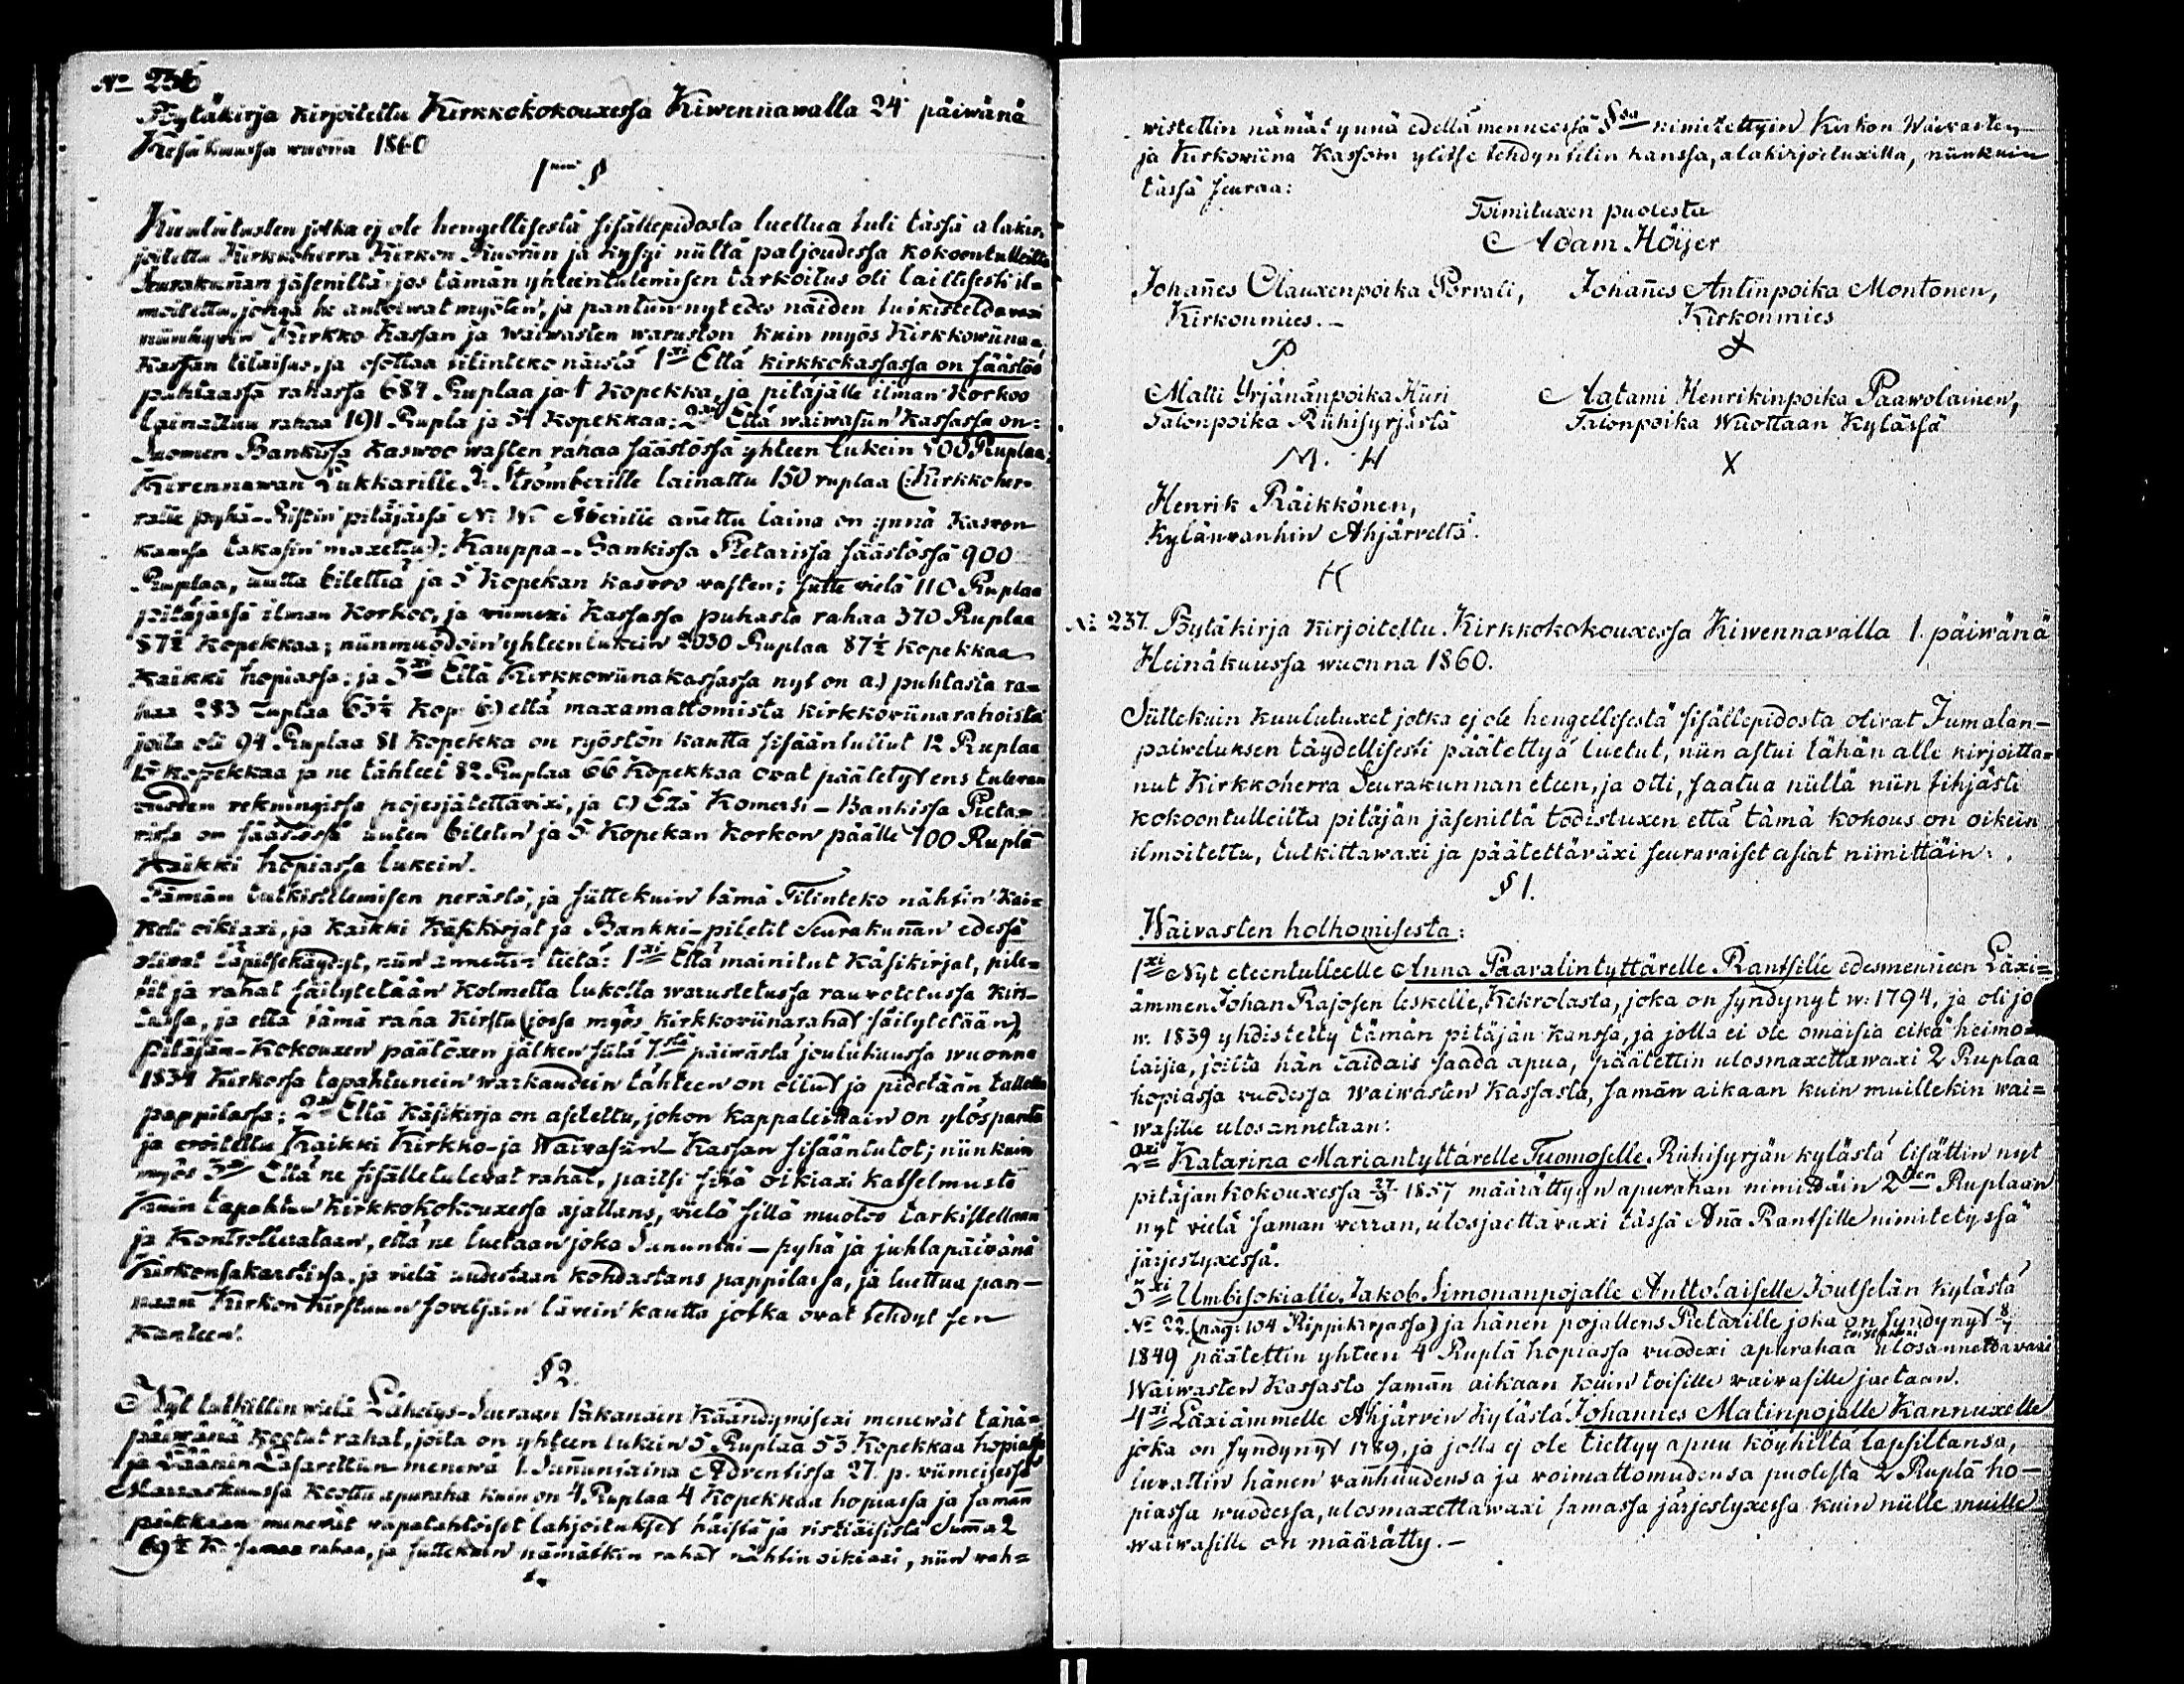 No 236
Pytäkirja kirjoitettu Kirkkokokouxessa Kiwennawalla 24 päiwänä
Kesäkuussa wuonna 1860
1 §
Kuulutusten jotka ej ole hengellisestä sisällepidosta luettua tuli tässä alakir-
joitettu Kirkkoherra Kirkon Kuoriin ja kysyi niiltä paljoudessa kokoontulleilta
Seurakunan jäseniltä jos tämän yhteentulemisen tarkoitus oli laillisesti il-
moitettu, jonga he antoiwat myöten, ja pantiin nyt edes näiden tutkisteldawaxi
Kirkko Kassan ja waiwasten waruston kuin myös Kirkkowiina-
Kassan tilaisus, ja osottaa tilinteko näistä 1xi Että kirkkokassassa on säästöö
puhtaassa rahassa 687 Ruplaa ja 1 Kopekka, ja pitäjälle ilman Korkoo
lainattuu rahaa 191 Rupla ja 54 Kopekkaa; 2xi Että waiwasiin Kassassa on:
Suomen Bankissa Kaswoo wasten rahaa säästössä yhteen lukein 500 Ruplaa;
Kirennawan Lukkarille J: Strömberille lainattu 150 ruplaa (: Kirkkoher-
ralle pyhä-Ristin pitäjässä N: W: Åberille anettu laina on ynnä Kaswon
kanssa takasin maxettu:); Kauppa-Bankissa Pietarissa säästössä 900
Ruplaa, uutta bilettiä ja 5 Kopekan kaswoo wasten; sitte vielä 110 Ruplaa
pitäjässä ilman Korkoo, ja viimexi Kassassa puhasta rahaa 370 Ruplaa
87½ Kopekkaa; niinmuodoin yhteenlukein 2030 Ruplaa 87½ Kopekkaa
Kaikki hopiassa; ja 3xi Että Kirkkowiinakassassa nyt on a) puhtasta ra-
haa 283 ruplaa 63¼ Kop: b) että maxamattomista kirkkoviinarahoista
joita oli 94 Ruplaa 81 Kopekka on ryöstön kautta sisääntullut 12 Ruplaa
15 Kopekkaa ja ne tähteet 82 Ruplaa 66 Kopekkaa ovat päätetyt ens tulewan
vuoden rekningissa pojesjätettäwixi, ja c) Että Komersi-Bankissa Pieta-
rissa on säästössä uuten biletin ja 5 Kopekan Korkon päälle 100 Ruplaa
Kaikki hopiassa lukein.
Tämän tutkistelemisen perästä, ja sittekuin tämä Tilinteko nähtin Kai-
keti oikiaxi, ja kaikki Käsikirjat ja Bankki-piletit Seurakunan edessä
olivat läpitsekäydyt, niin annettin tietä: 1xi Että mainitut Käsikirjat, pile-
tit ja rahat säilytetään Kolmella lukolla warustetussa rauvoitetussa Kirs-
tussa, ja että tämä raha Kirstu (jossa myös kirkkoviinarahat säilytetään)
Pitäjän-Kokouxen päätöxen jälken siitä 7stä päiwästä joulukuussa wuonna
1834 Kirkossa tapahtunein warkaudein tähteen on ollut ja pidetään tallella
pappilassa; 2xi Että Käsikirja on asetettu, johon kappaleittain on ylöspantu
ja eroitettu Kaikki Kirkko-ja Waiwasiin-Kassan sisääntulot; niinkuin
myös 3xi Että ne sisälletulevat rahat, paitsi sitä oikiaxi katselmusta
kuin tapahtuu Kirkkokokouxessa ajallans, vielä sillä muotoo tarkistellaan
ja Kontrollerataan, että ne luetaan joka Sunnuntai-pyhä ja juhlapäivänä
Kirkonsakaristissa, ja vielä uudestaan kohdastans pappilassa, ja luettua pan-
naan Kirkon Kirstuun soveljain lävein kautta jotka ovat tehdyt sen
Kanteen.
§ 2.
Nyt tutkittin wielä Lähetys-Seuraan Pakanoien Käändymisexi menewät tänä-
päiwänä Kootut rahat, joita on yhteen lukein 5 Ruplaa 53 Kopekkaa hopiassa
ja Läänin Lasarettiin menewä 1. Sununtaina Adventissa 27. p. viimeisessä
Marraskuussa Koottu apuraha kuin on 4 Ruplaa 4 Kopekkaa hopiassa ja samān
paikkaan menewät wapatahtoiset lahjoitukset häistä ja ristiäisistä Suma 2
69½ K. samaa rahaa, ja sittekuin nämätkin rahat nähtin oikiaxi, niin wah-
wistettin nämät ynnä edellä menneessä § nimitettyin Kirkon Waivasten
ja Kirkowiina Kassoin ylitse tehdyn tilin kanssa, alakirjoituxilla, niinkuin
tässä seuraa:
Toimituxen puolesta
Adam Höijer
Johañes Clauxenpoika Porvali, Johañes Antinpoika Montonen,
Kirkonmies.- Kirkonmies
P X
Matti Yrjänänpoika Hiiri Aatami Henrikinpoika Paawolainen,
Talonpoika Riihisyrjästä Talonpoika Wuottaan Kylässä
M. H X
Henrik Räikkönen,
Kylänvanhin Ahjärveltä.
H
No 237. Pytäkirja kirjoitettu Kirkkokokouxessa Kiwennavalla 1. päiwänä
Heinäkuussa wuonna 1860.
Sittekuin kuulutuxet jotka ej ole hengellisestä sisällepidosta olivat Jumalan-
palweluksen täydellisesti päätettyä luetut, niin astui tähän alle kirjoitta-
nut Kirkkoherra Seurakunnan eteen, ja otti, saatua niiltä niin tihjästi
kokoontulleilta pitäjän jäseniltä todistuxen että tämä kokous on oikein
ilmoitettu, tutkittawaxi ja päätettäväxi seuravaiset asiat nimittäin:
§ 1.
Waivasten holhomisesta:
1xi Nyt eteentulleelle Anna Paavalintyttärelle Rantsille edesmenneen Läxi-
ämmen Johan Rajosen leskelle, Kekrolasta, joka on syndynyt w: 1794, ja oli jo
w. 1839 yhdistetty tämän pitäjän kanssa, ja jolla ei ole omaisia eikä heimo-
laisia, joilta hän taidais saada apua, päätettin ulosmaxettawaxi 2 Ruplaa
hopiassa vuodessa waiwasten Kassasta, saman aikaan kuin muillekin wai-
wasille ulosannetaan:
2xi Katarina Mariantyttärelle Tuomoselle Riihisyrjän kylästä lisättin nyt
pitäjankokouxessa 27/9 1857 määrättyyn apurahan nimittäin 2den Ruplaan
nyt vielä saman verran, ulosjaettavaxi tässä Aña Rantsille nimitetyssä
järjestyxessä.
3xi Umbisokialle Jakob Simonanpojalle Anttolaiselle Joutselän Kylästä
No 22. (pag: 104 Rippikirjassa) ja hänen pojallens Pietarille joka on syndynyt 8/7
1849 päätettin yhteen 4 Ruplā hopiassa vuodexi apurahaa ulosannettavaxi
Waiwasten Kassasta samān aikaan kuin toisille vaivasille jaetaan.
4xi Läxiämmelle Ahjärven Kylästä Johannes Matinpojalle Kannuxelle
joka on syndynyt 1789, ja jolla ej ole tiettyy apuu köyhiltä lapsiltansa,
luvattin hänen vanhuudensa ja voimattomudensa puolesta 2 Ruplā ho-
piassa wuodessa, ulosmaxettawaxi samassa järjestyxessä kuin niille muille
waiwasille on määrätty.-